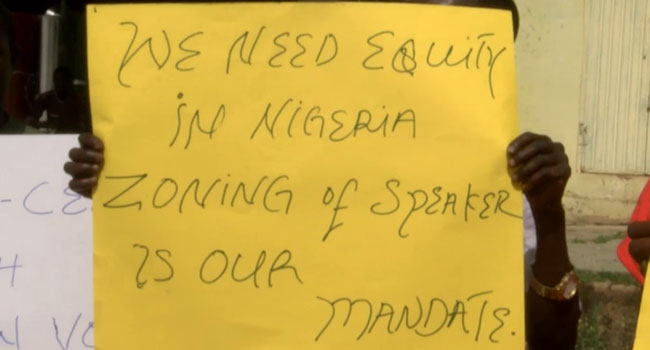 WE NEED EQUITY
IN NIGERIA
ZONING of SPEAKER
IS OUR
MANDATE.
-CE
H
N VO